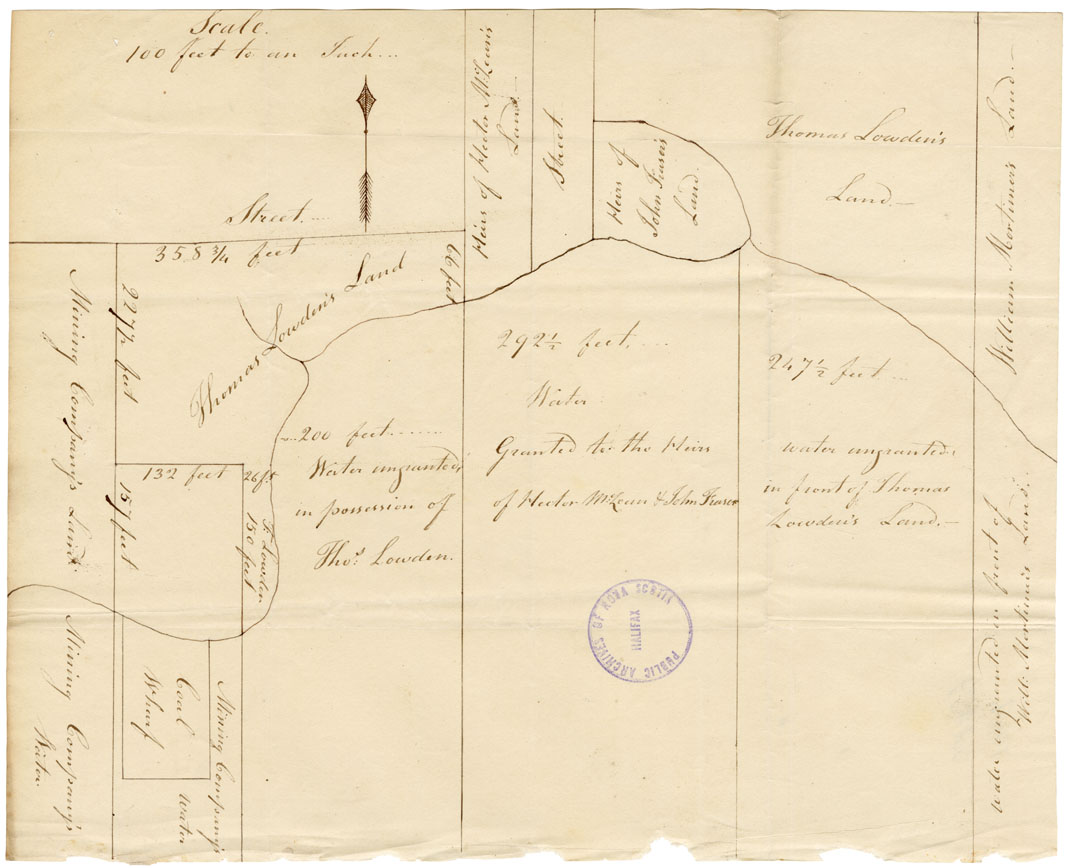 Scale.
100 feet to an Inch...
Street.
358 3/4 feet
Thomas Lowden's Land
66 feet
Heirs of Hector McLean's
Land
Street.
Heirs of
John Fraser's
Land.
Thomas Lowden's
Land.
William Mortimer's Land.
Mining Company's Land.
227½ feet
132 feet
26 ft
157 feet
T. Lowden
150 feet
200 feet
Water ungranted,
in possession of
Thos. Lowden.
292½ feet,
Water
Granted to the Heirs
of Hector McLean & John Fraser
247½ feet
water ungranted
in front of Thomas
Lowden's Land.
water ungranted in front of
Will. Mortimer's Land.
Mining Company's
Water.
Coal
Wharf
Mining Company's
Water
PUBLIC ARCHIVES OF NOVA SCOTIA
HALIFAX